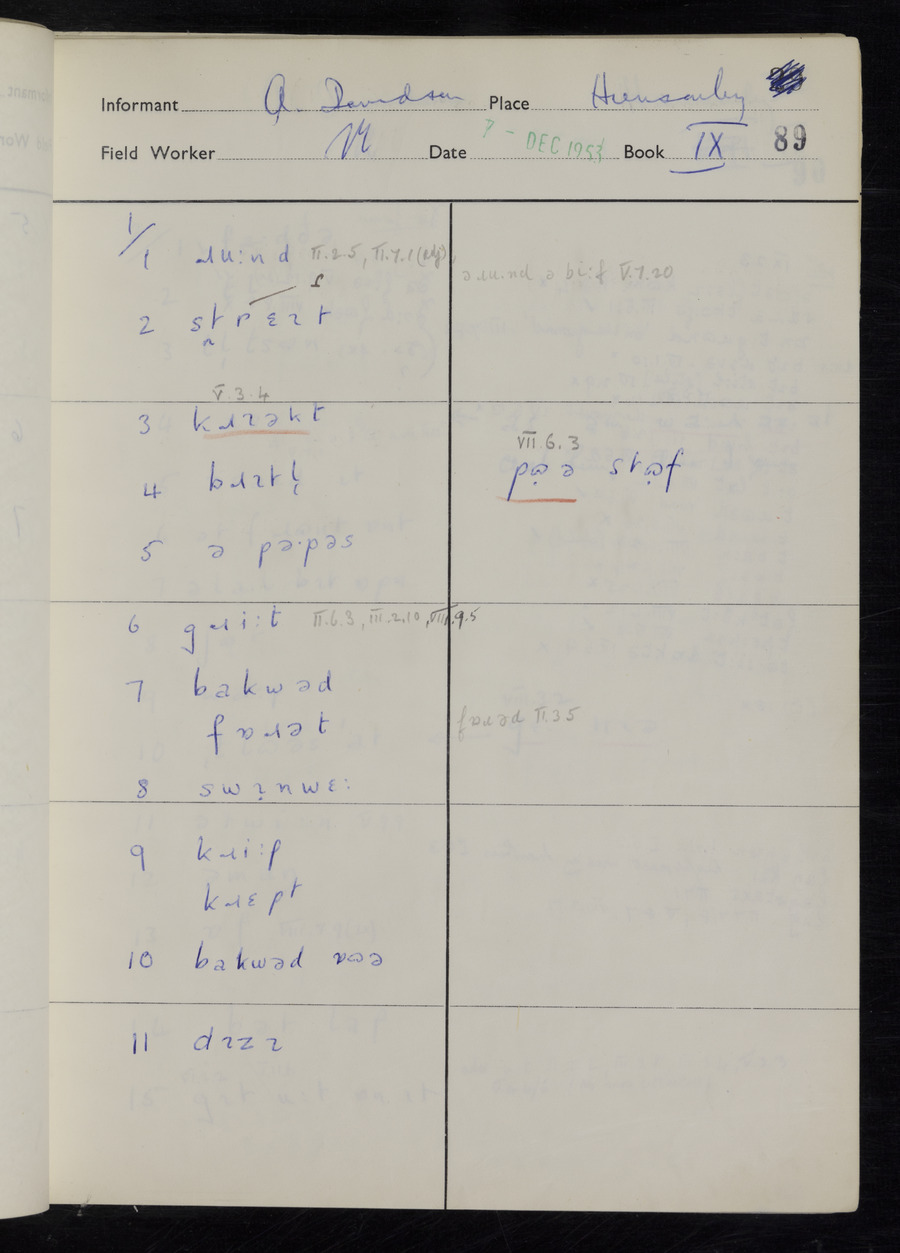 Informant A. Davidson Place Hunsonby
Field Worker Date ? - DEC 1953 Book IX 89
1/
1 ɹu:nd II.2.5, II.7.1 (adj), əɹu.nd ə bi:f V.7.20
ʃ
2 strɛɪt
V.3.4
3 kɹɪəkt
VII.6.3
4 bɹɪtl̩ pɷ̣ə stɷ̣f
5 ə pə·pəs
6 gɹi:t II.6.3, III.2.10, VIII.9.5
7 bakwəd
faɹət farəd II.3.5
8 swɪnwɛ:
9 kɹi:p
kɹɛpt
10 bakwəd
11 dɪzɪ